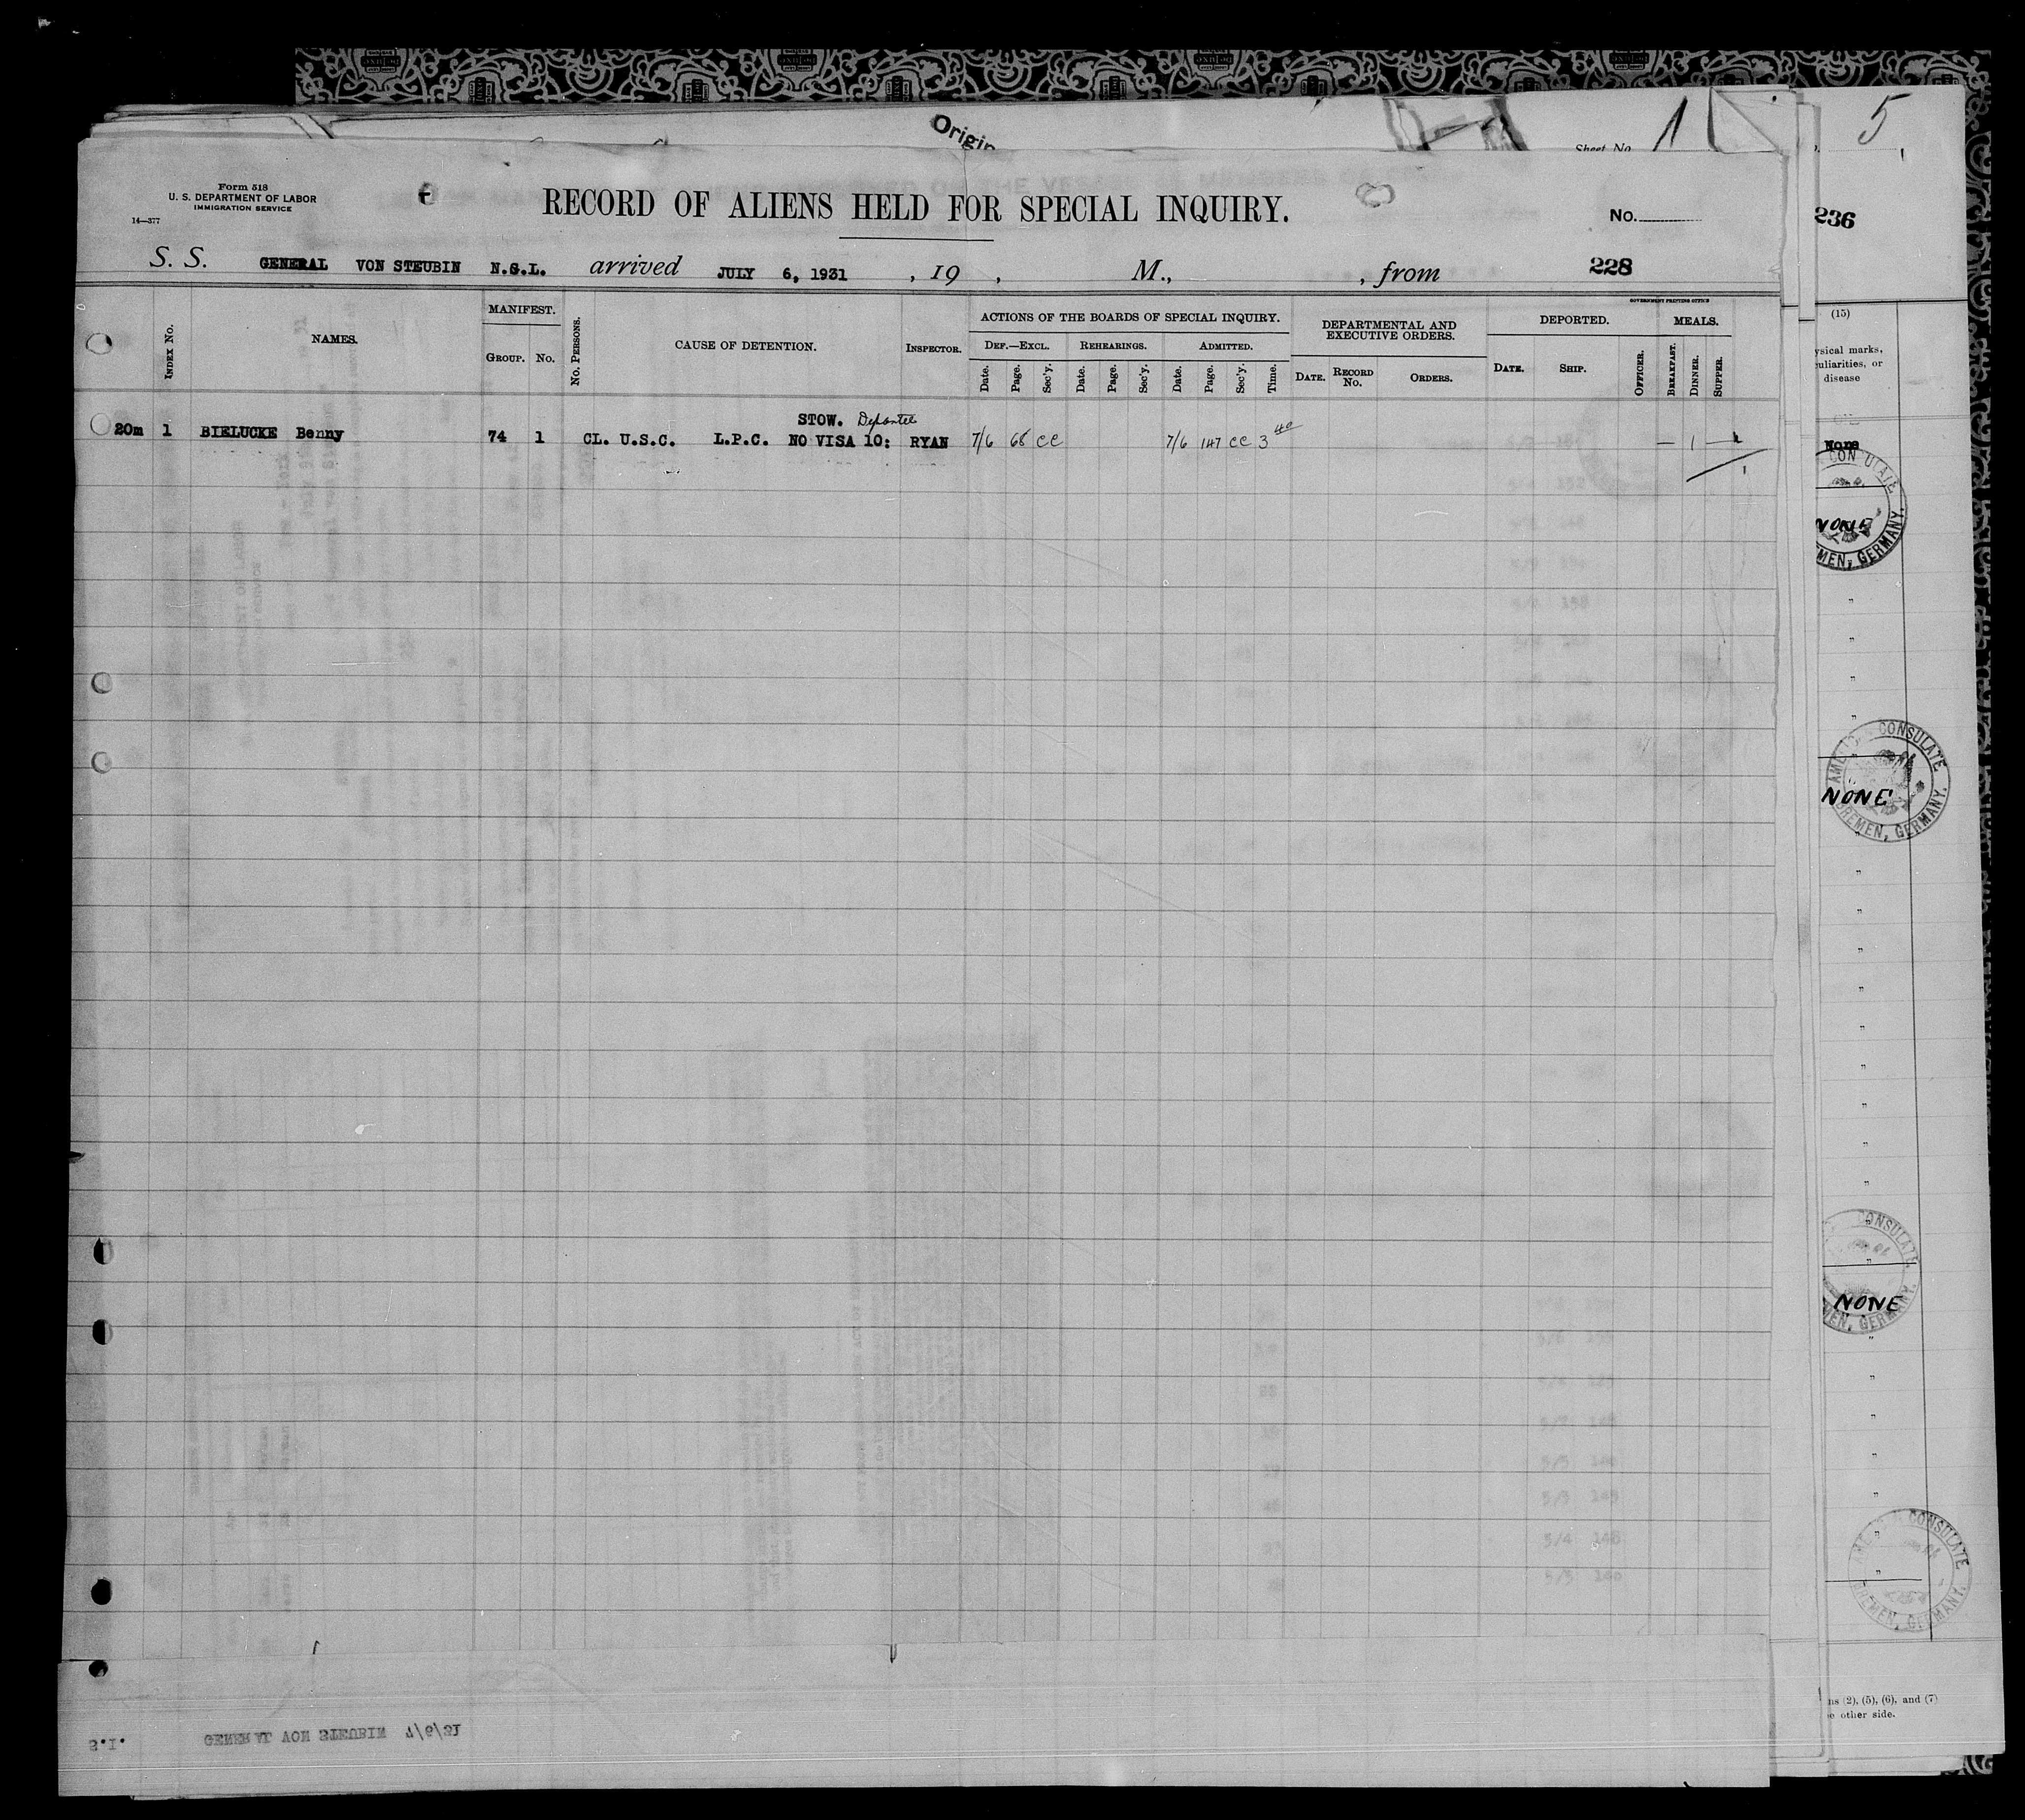 Origin
Sheet No. 1
5
Form 518
U. S. DEPARTMENT OF LABOR
IMMIGRATION SERVICE
14—377
RECORD OF ALIENS HELD FOR SPECIAL INQUIRY.
No.
236
S. S. GENERAL VON STEUBIN N.G.L. arrived JULY 6, 1931 , 19 , M., , from 228
GOVERNMENT PRINTING OFFICE
INDEX NO.
NAMES.
MANIFEST.
GROUP. NO.
NO. PERSONS.
CAUSE OF DETENTION.
INSPECTOR.
ACTIONS OF THE BOARDS OF SPECIAL INQUIRY.
DEF.—EXCL. REHEARINGS. ADMITTED.
Date. Page. Sec'y. Date. Page. Sec'y. Date. Page. Sec'y. Time.
DEPARTMENTAL AND
EXECUTIVE ORDERS.
DATE. RECORD NO. ORDERS.
DEPORTED.
DATE. SHIP.
OFFICER.
MEALS.
BREAKFAST. DINNER. SUPPER.
STOW. Deportee
20m 1 BIELUCKE Benny 74 1 CL. U.S.C. L.P.C. NO VISA 10: RYAN 7/6 68 CC 7/6 147 CC 3 40 — 1 — 1
1
(15)
ysical marks,
uliarities, or
disease
None
CONSULATE
NONE
MEN, GERMANY.
"
"
"
"
AMERICAN CONSULATE
NONE
BREMEN, GERMANY.
"
"
"
"
"
"
"
"
"
CONSULATE
NONE
MEN, GERMANY.
"
"
"
"
"
AMERICAN CONSULATE
BREMEN, GERMANY.
5/5 149
5/4 148
5/5 140
ns (2), (5), (6), and (7)
e other side.
S.I. GENERAL VON STEUBIN 7/6/31